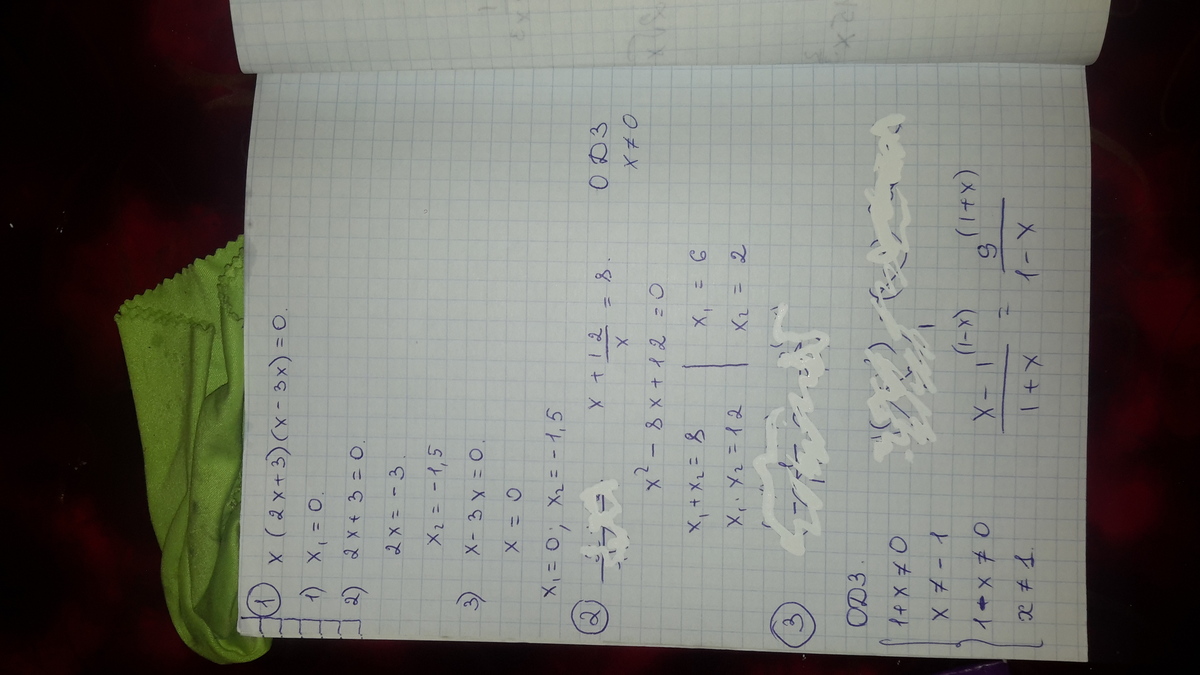 1 x(2x+3)(x-3x)=0.
1) x₁=0.
2) 2x+3=0.
2x=-3.
x₂=-1,5
3) x-3x=0.
x=0
x₁=0; x₂=-1,5
2 x+12/x=8. ОДЗ
x≠0
x²-8x+12=0
x₁+x₂=8 | x₁=6
x₁·x₂=12 | x₂=2
3
ОДЗ.
{1+x≠0
x≠-1
{1-x≠0
x≠1.
x-1^(1-x)/1+x = 9^(1+x)/1-x